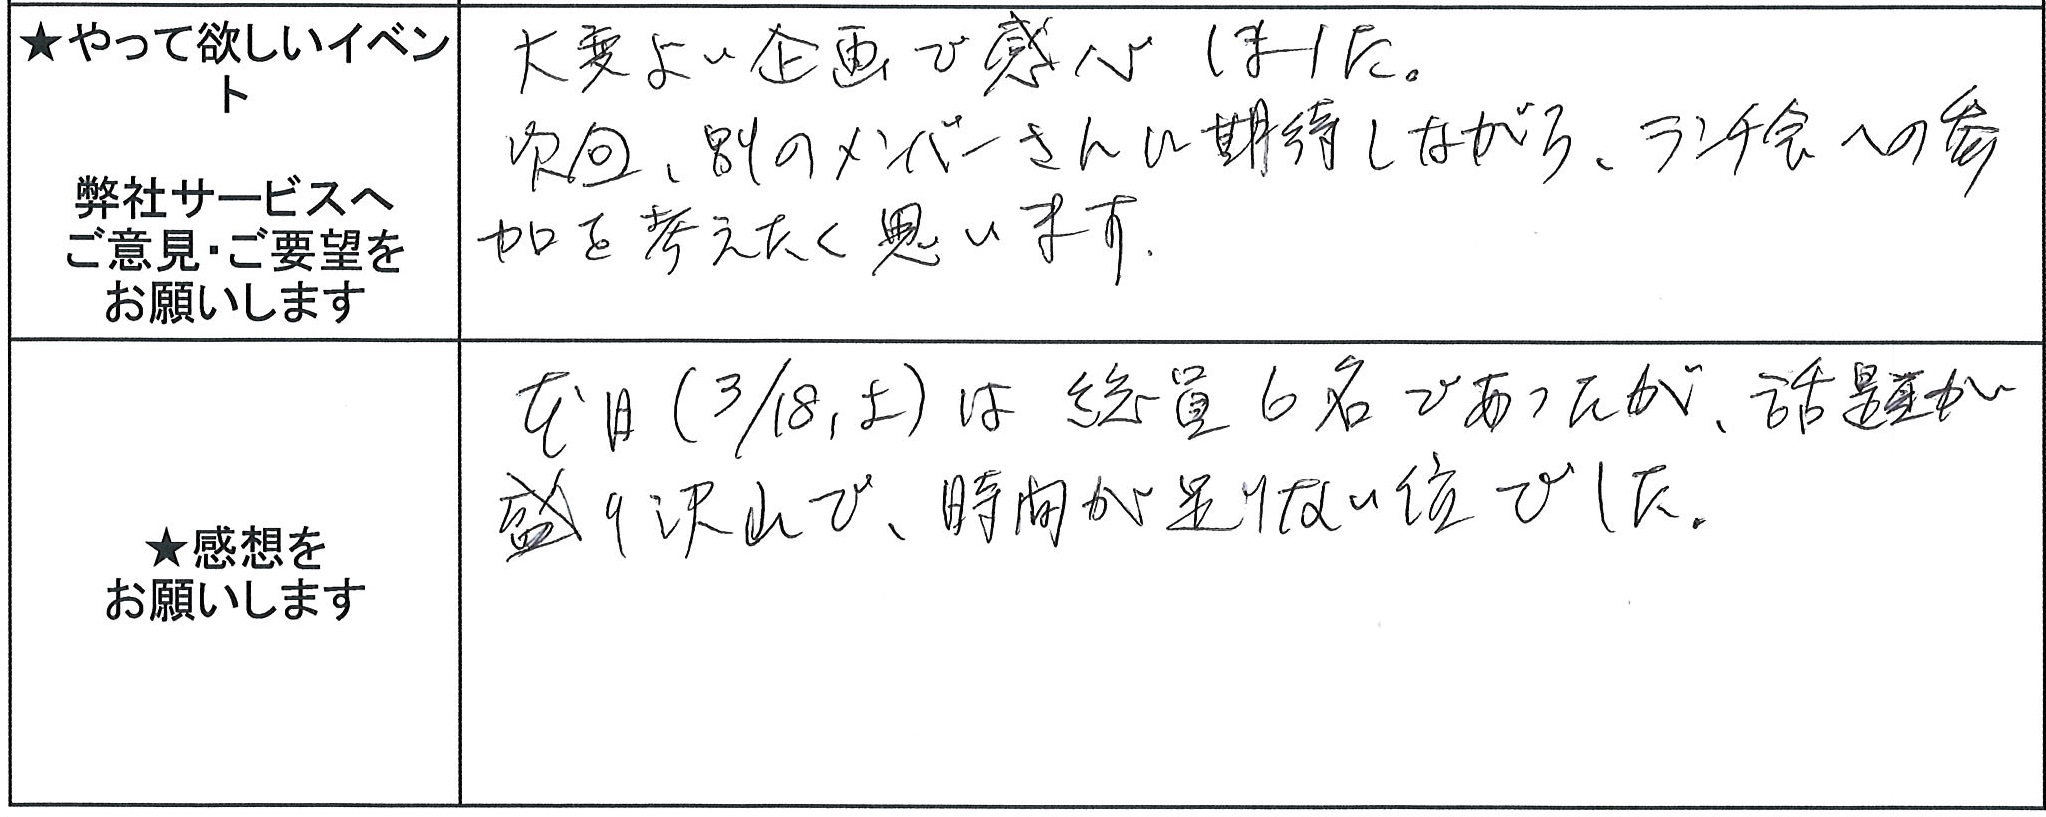 ★やって欲しいイベン
ト
弊社サービスへ
ご意見・ご要望を
お願いします
大変よい企画で感心しました。
次回、別のメンバーさんに期待しながら、ランチ会への参
加を考えたく思います.
★感想を
お願いします
本日(3/18,土)は総員6名であったが、話題が
盛り沢山で、時間が足りない位でした.